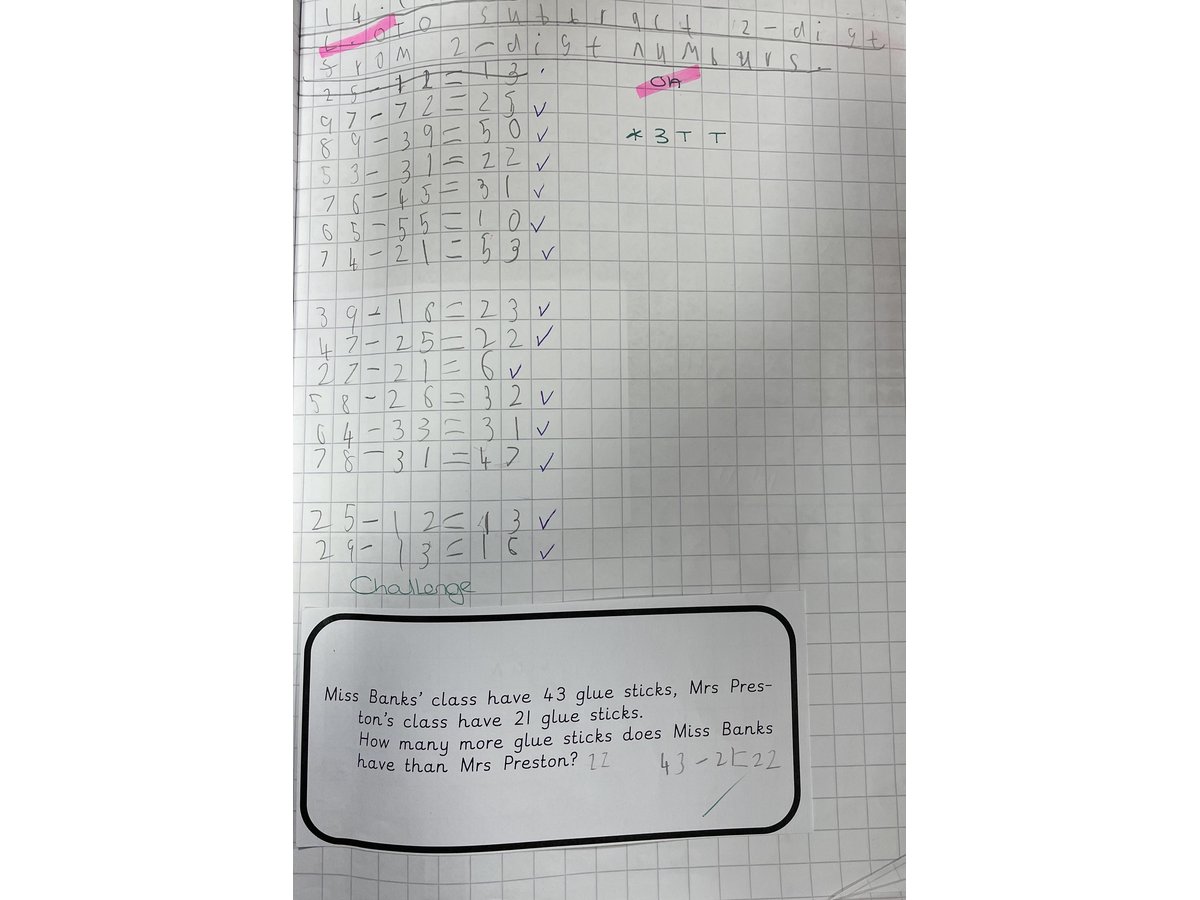 14.
L.O To subtract 2-digt
from 2-digt numburs.
25-12=13
OA
97-72=25 ✓
89-39=50 ✓
* 3 T T
53-31=22 ✓
76-45=31 ✓
65-55=10 ✓
74-21=53 ✓
39-16=23 ✓
47-25=22 ✓
27-21=6 ✓
58-26=32 ✓
64-33=31 ✓
78-31=47 ✓
25-12=13 ✓
29-13=16 ✓
Challenge
Miss Banks' class have 43 glue sticks, Mrs Pres-
ton's class have 21 glue sticks.
How many more glue sticks does Miss Banks
have than Mrs Preston? 22 43-21=22